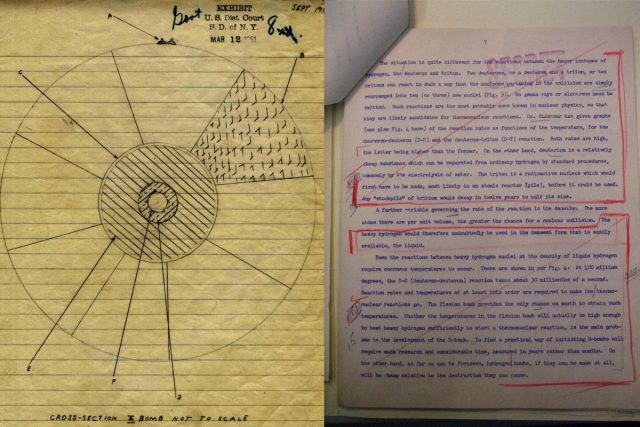 EXHIBIT
U. S. Dist. Court
S. D. of N. Y.
MAR 12 1951
Govt
8
SEPT 19
A
B
C
E
F
D
CROSS-SECTION A BOMB NOT TO SCALE
7
SECRET
The situation is quite different for the reactions between the heavy isotopes of
hydrogen, the deuteron and triton. Two deuterons, or a deuteron and a triton, or two
tritons can react in such a way that the nucleons partaking in the collision are simply
rearranged into two (or three) new nuclei (Fig. 3). No gamma rays or electrons need be
emitted. Such reactions are the most probable ones known in nuclear physics, so that
they are likely candidates for thermonuclear reactions. Dr. Ridenour has given graphs
(see also Fig. 4 here) of the reaction rates as functions of the temperature, for the
deuteron-deuteron (D-D) and the deuteron-triton (D-T) reaction. Both rates are high,
the latter being higher than the former. On the other hand, deuterium is a relatively
cheap substance which can be separated from ordinary hydrogen by standard procedures,
commonly by the electrolysis of water. The triton is a radioactive nucleus which would
first have to be made, most likely in an atomic reactor (pile), before it could be used.
Any "stockpile" of tritium would decay in twelve years to half its size.
A further variable governing the rate of the reaction is the density. The more
atoms there are per unit volume, the greater the chance for a nuclear collision. The
heavy hydrogen would therefore undoubtedly be used in the densest form that is easily
available, the liquid.
Even the reactions between heavy hydrogen nuclei at the density of liquid hydrogen
require enormous temperatures to occur. There are shown in our Fig. 4: At 100 million
degrees, the D-D (Deuteron-deuteron) reaction takes about 30 millionths of a second.
Reaction rates and temperatures of at least this order are required to make the thermo-
nuclear reactions go. The fission bomb provides the only chance on earth to obtain such
temperatures. Whether the temperatures in the fission bomb will actually be high enough
to heat heavy hydrogen sufficiently to start a thermonuclear reaction, is the main prob-
lem to the development of the H-bomb. To find a practical way of initiating H-bombs will
require much research and considerable time, measured in years rather than months. On
the other hand, as far as can be foreseen, hydrogen bombs, if they can be made at all,
will be cheap relative to the destruction they can cause.